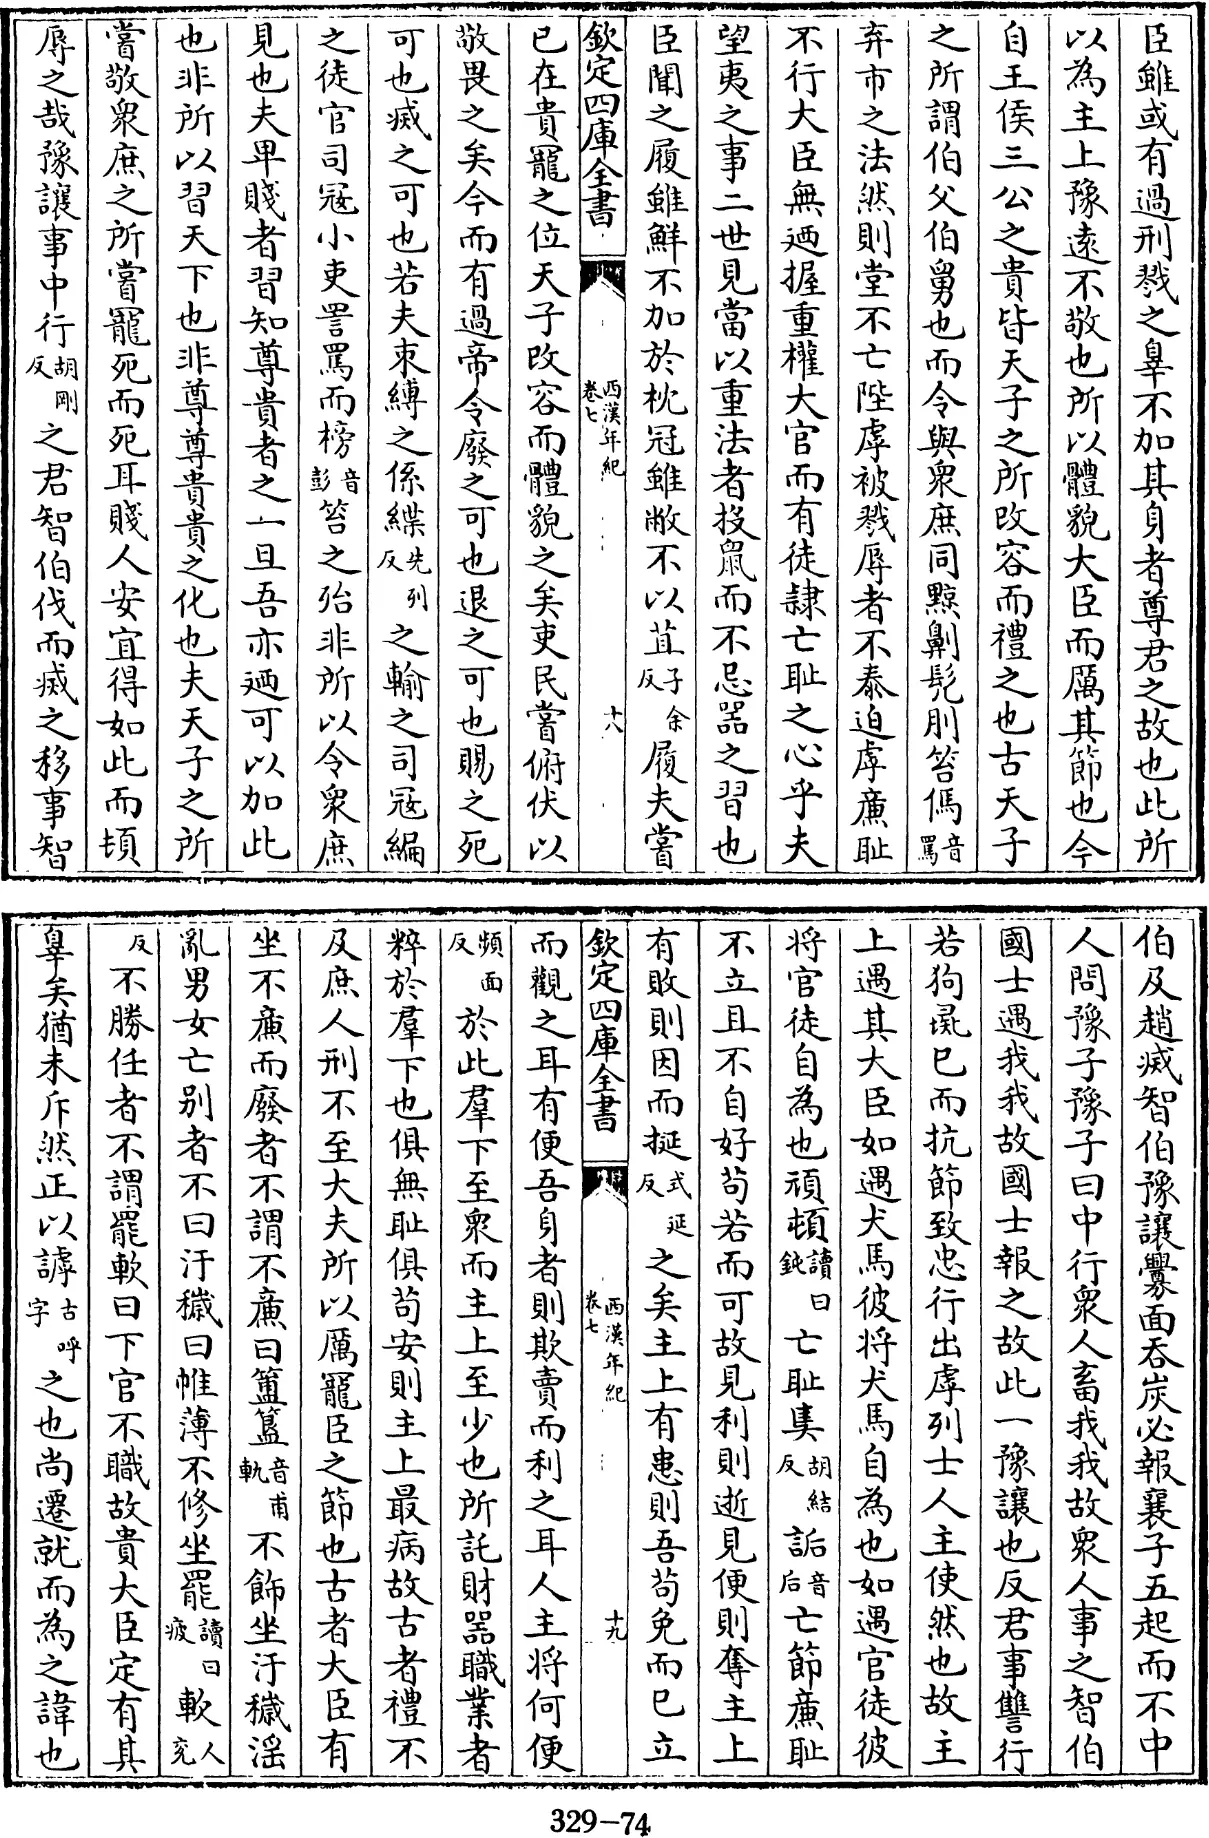 臣雖或有過刑戮之辠不加其身者尊君之故也此所
以為主上豫遠不敬也所以體貌大臣而厲其節也今
自王侯三公之貴皆天子之所改容而禮之也古天子
之所謂伯父伯舅也而令與衆庶同黥劓髠刖笞傌音罵
弃市之法然則堂不亡陛虖被戮辱者不泰迫虖廉恥
不行大臣無廼握重權大官而有徒隷亡耻之心乎夫
望夷之事二世見當以重法者投鼠而不忌器之習也
臣聞之履雖鮮不加於枕冠雖敝不以苴子余反履夫嘗
欽定四庫全書 西漢年紀卷七 十八
已在貴寵之位天子改容而體貌之矣吏民嘗俯伏以
敬畏之矣今而有過帝令廢之可也退之可也賜之死
可也烕之可也若夫束縛之係緤先列反之輸之司冦編
之徒官司冦小吏詈罵而榜音彭笞之殆非所以令衆庶
見也夫卑賤者習知尊貴者之一旦吾亦廼可以加此
也非所以習天下也非尊尊貴貴之化也夫天子之所
嘗敬衆庶之所嘗寵死而死耳賤人安宜得如此而頓
辱之哉豫讓事中行胡剛反之君智伯伐而烕之移事智
伯及趙烕智伯豫讓釁面吞炭必報襄子五起而不中
人問豫子豫子曰中行衆人畜我我故衆人事之智伯
國士遇我我故國士報之故此一豫讓也反君事讐行
若狗彘已而抗節致忠行出虖列士人主使然也故主
上遇其大臣如遇犬馬彼將犬馬自為也如遇官徒彼
將官徒自為也頑頓讀曰鈍亡耻奊胡結反詬音后亡節廉耻
不立且不自好苟若而可故見利則逝見便則奪主上
有敗則因而挻式延反之矣主上有患則吾苟免而已立
欽定四庫全書 西漢年紀卷七 十九
而觀之耳有便吾身者則欺賣而利之耳人主將何便
頻面反於此羣下至衆而主上至少也所託財器職業者
粹於羣下也俱無耻俱苟安則主上最病故古者禮不
及庶人刑不至大夫所以厲寵臣之節也古者大臣有
坐不廉而廢者不謂不廉曰簠簋音甫軌不飾坐汙穢滛
亂男女亡别者不曰汙穢曰帷薄不修坐罷讀曰疲軟人兖
反不勝任者不謂罷軟曰下官不職故貴大臣定有其
辠矣猶未斥然正以謼古呼字之也尚遷就而為之諱也
329-74